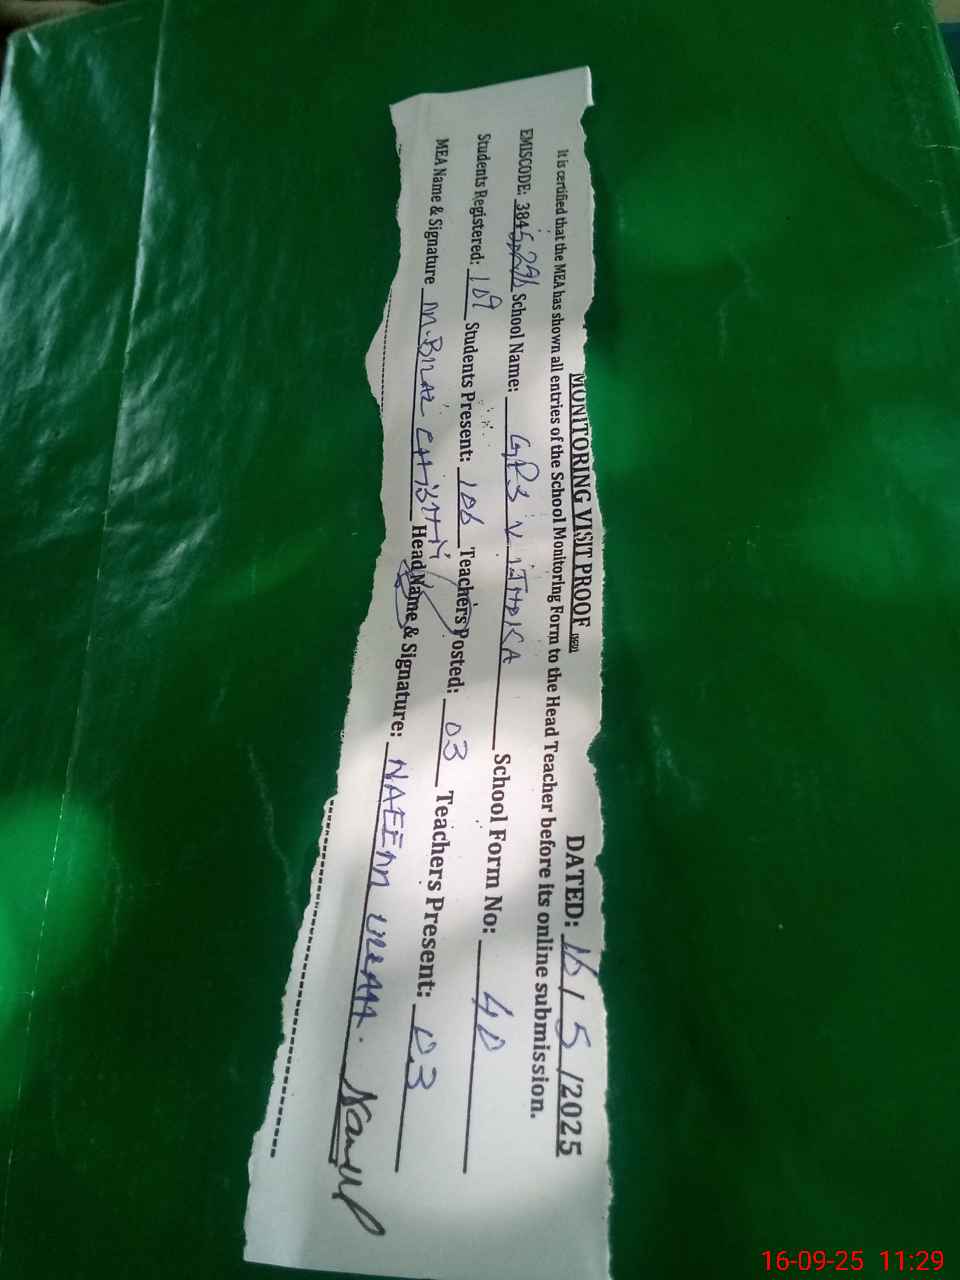 MONITORING VISIT PROOF DATED: 16 / 5 /2025
It is certified that the MEA has shown all entries of the School Monitoring Form to the Head Teacher before its online submission.
EMISCODE: School Name: GPS School Form No: 40
Students Registered: 109 Students Present: 106 Teachers Posted: 03 Teachers Present: 03
MEA Name & Signature M. BILAL CHISHTI Head Name & Signature: NAEEM ULLAH.
16-09-25 11:29